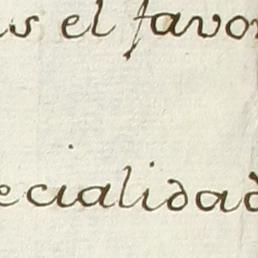 as el favor
ecialidad